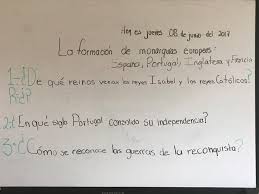 Hoy es jueves 08 de junio del 2017
La formación de monarquias europeas:
España, Portugal, Inglaterra y Francia
1-¿De qué reinos venian los reyes Isabel y los reyes Católicos?
R=
2-¿En qué siglo Portugal consolido su independencia?
3-¿Cómo se reconoce las guerras de la reconquista?